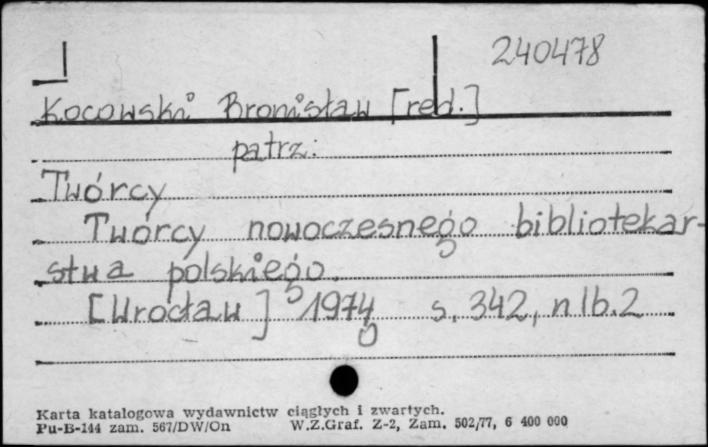 240478
Kocowski Bronisław [red.]
patrz:
Twórcy
Twórcy nowoczesnego bibliotekar-
stwa polskiego.
[Wrocław] 1974 s. 342, nlb. 2
Karta katalogowa wydawnictw ciągłych i zwartych.
Pu-B-144 zam. 567/DW/On W.Z.Graf. Z-2, Zam. 502/77, 6 400 000